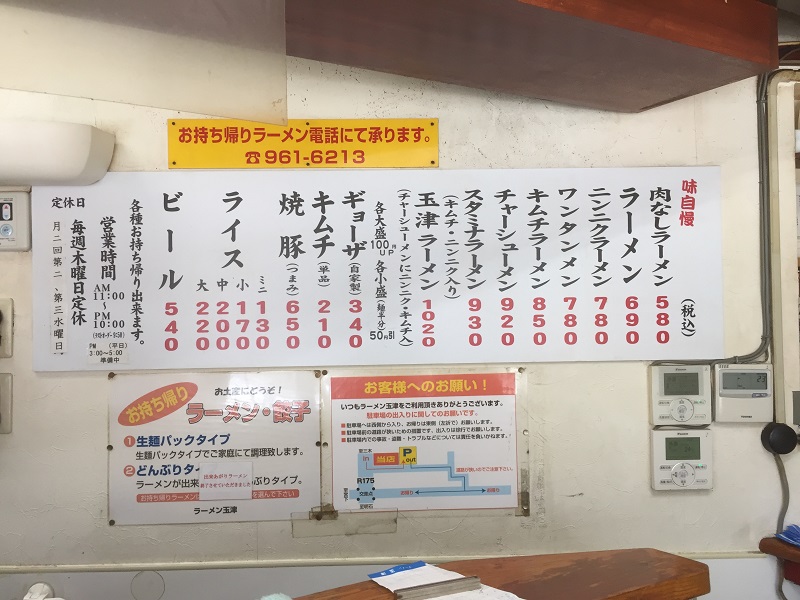 お持ち帰りラーメン電話にて承ります。
☎961-6213
味自慢
(税込)
肉なしラーメン 580
ラーメン 690
ニンニクラーメン 780
ワンタンメン 780
キムチラーメン 850
チャーシューメン 920
スタミナラーメン 930
(キムチ・ニンニク入り)
玉津ラーメン 1020
(チャーシューメンにニンニク・キムチ入)
各大盛100円UP
各小盛(麺半分)50円引
ギョーザ(自家製) 340
キムチ(単品) 210
焼豚(つまみ) 650
ライス
ミニ 130
小 170
中 200
大 220
ビール 540
各種お持ち帰り出来ます。
営業時間
AM 11:00
〜
PM 10:00
PM (平日)
3:00〜5:00
準備中
定休日
毎週木曜日定休
月二回第二、第三水曜日
お持ち帰り
お土産にどうぞ!
ラーメン・餃子
1 生麺パックタイプ
生麺パックタイプでご家庭にて調理致します。
2 どんぶりタ
ラーメンが出来
ぶりタイプ。
出来あがりラーメン
終了させていただきました
お持ち帰りラーメン
を選んで下さい
ラーメン玉津
お客様へのお願い!
いつもラーメン玉津をご利用頂きありがとうございます。
駐車場の出入りに関してのお願いです。
当店
P
in
out
R175
交差点